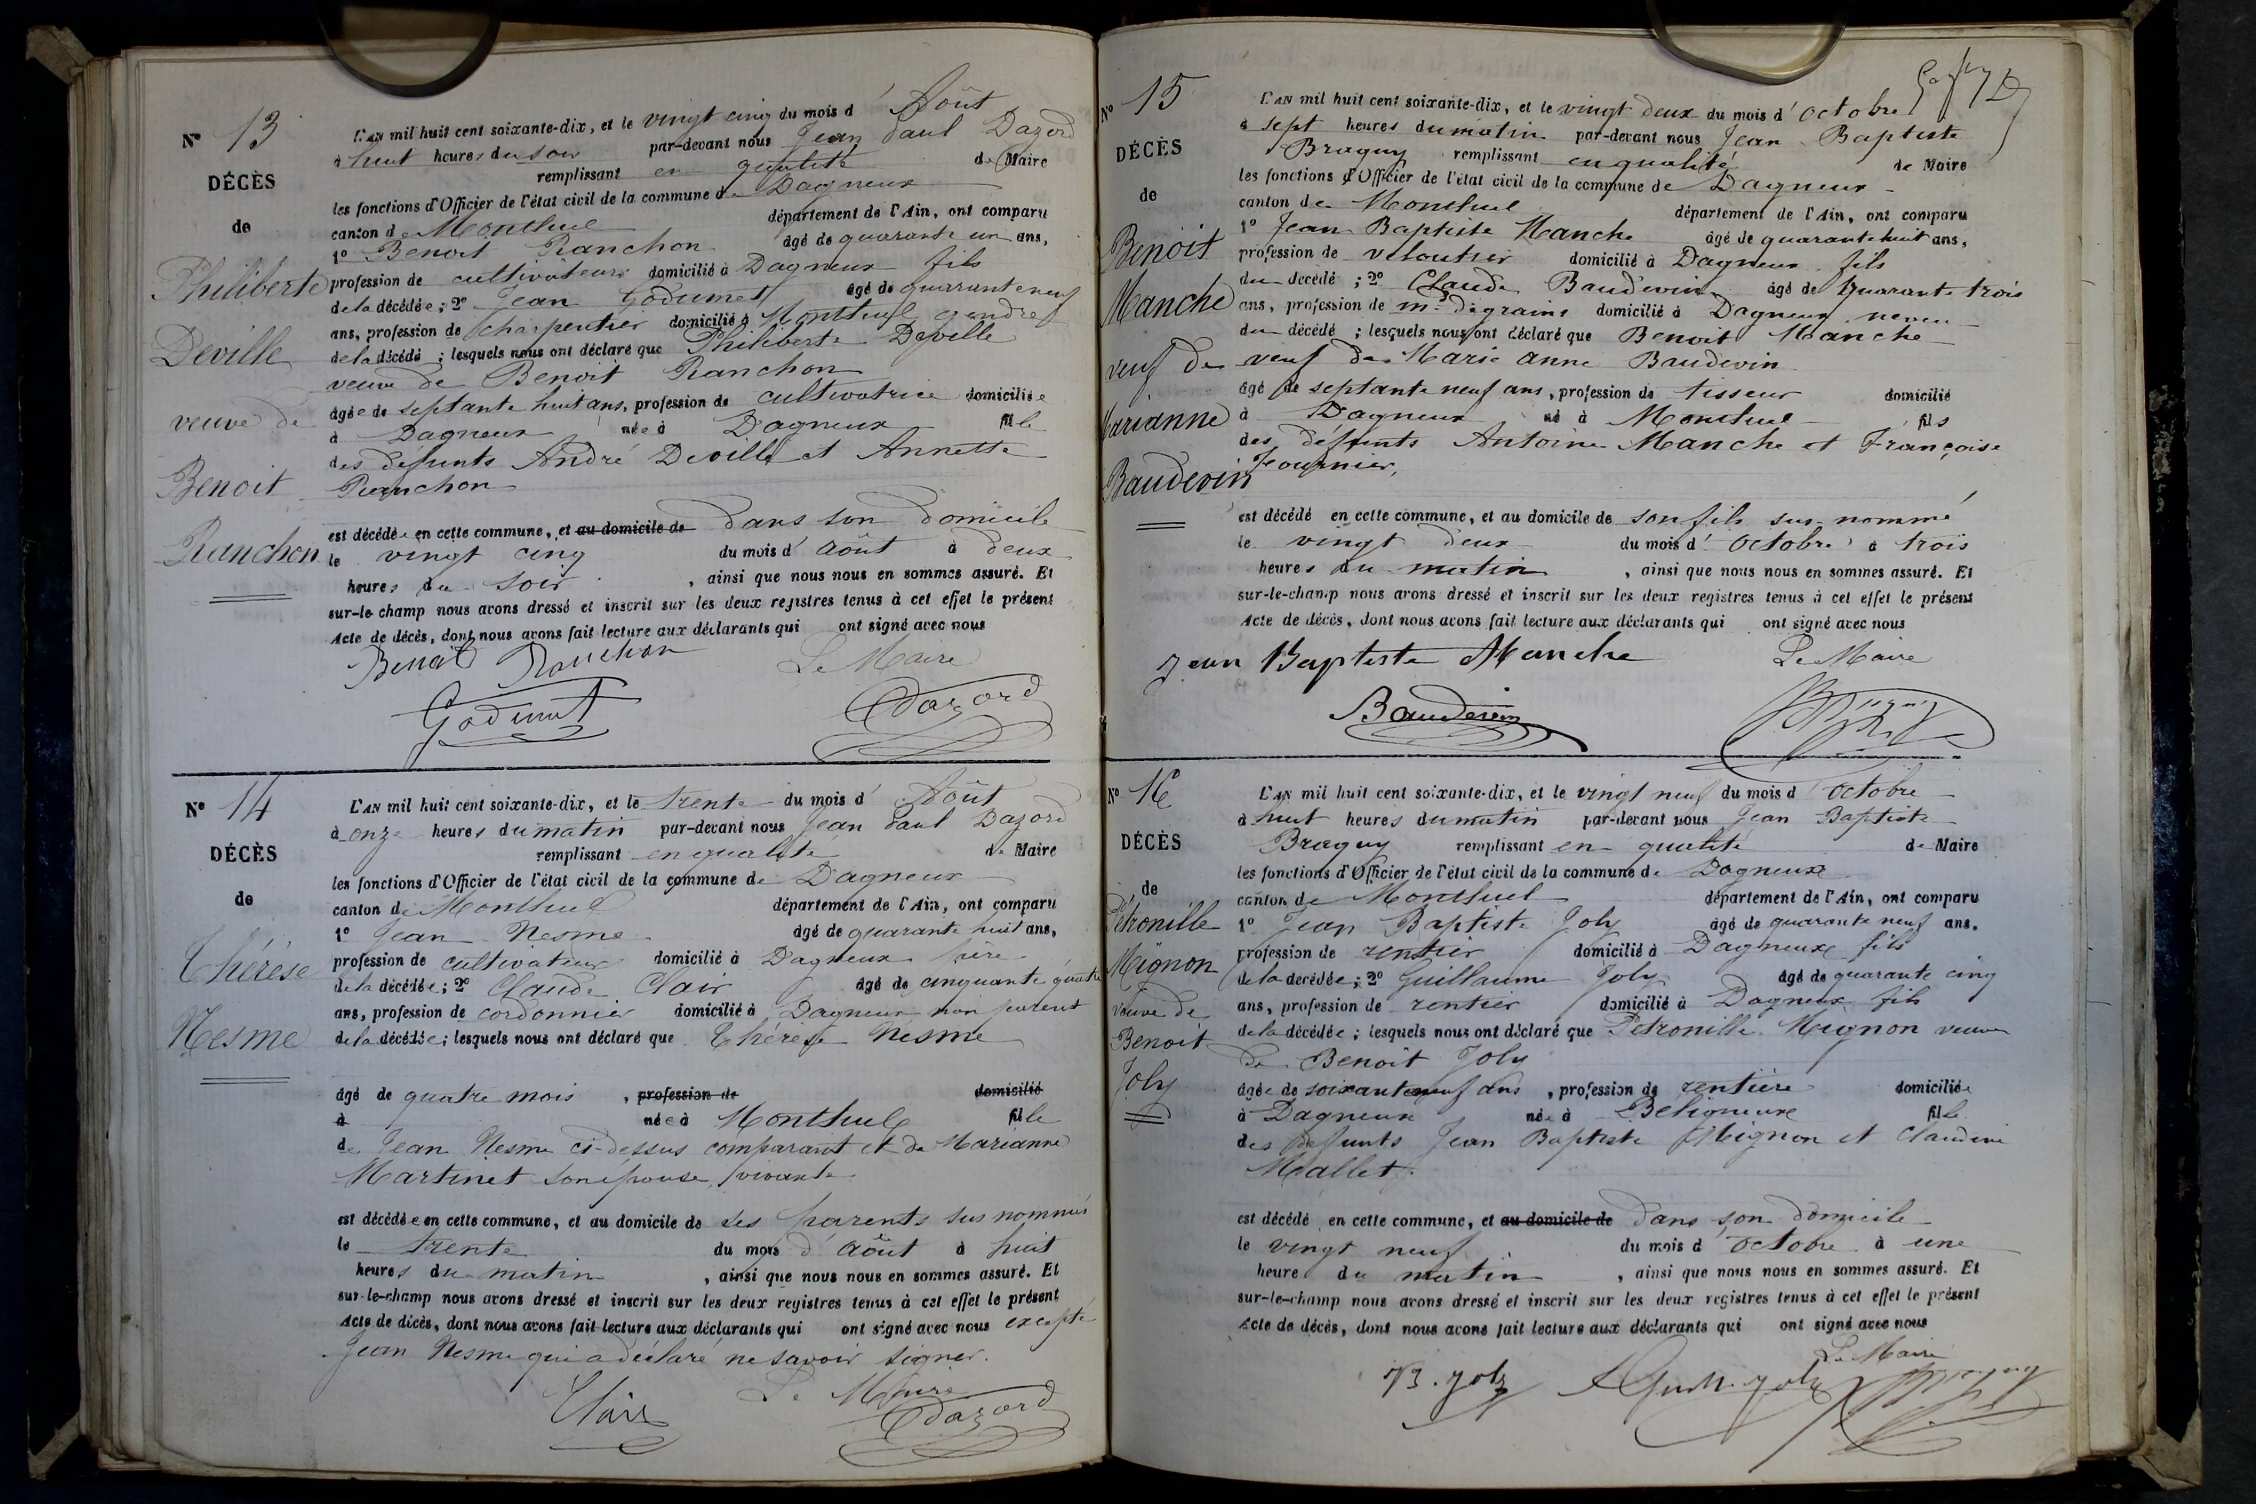 N° 13
DÉCÈS
de
Philiberte
Deville
veuve de
Benoit
Ranchon
L'AN mil huit cent soixante-dix, et le vingt cinq du mois d'Août
à huit heures du soir par-devant nous Jean Paul Dazord
remplissant en qualité de Maire
les fonctions d'Officier de l'état civil de la commune de Dagneux
canton de Montluel département de l'Ain, ont comparu
1° Benoit Ranchon âgé de quarante un ans,
profession de cultivateur domicilié à Dagneux fils
de la décédée; 2° Jean Godumet âgé de quarante neuf
ans, profession de charpentier domicilié à Montluel gendre
de la décédé; lesquels nous ont déclaré que Philiberte Deville
veuve de Benoit Ranchon
âgée de septante huit ans, profession de cultivatrice domiciliée
à Dagneux née à Dagneux fille
des défunts André Deville et Annette
Ranchon
est décédée en cette commune, et au domicile de dans son domicile
le vingt cinq du mois d'Août à deux
heures du soir, ainsi que nous nous en sommes assuré. Et
sur-le champ nous avons dressé et inscrit sur les deux registres tenus à cet effet le présent
Acte de décès, dont nous avons fait lecture aux déclarants qui ont signé avec nous
Benoit Ranchon Le Maire
Godumet Dazord
N° 14
DÉCÈS
de
Thérèse
Nesme
L'AN mil huit cent soixante-dix, et le trente du mois d'Août
à onze heures du matin par-devant nous Jean Paul Dazord
remplissant en qualité de Maire
les fonctions d'Officier de l'état civil de la commune de Dagneux
canton de Montluel département de l'Ain, ont comparu
1° Jean Nesme âgé de quarante huit ans,
profession de cultivateur domicilié à Dagneux père
de la décédée; 2° Claude Clair âgé de cinquante quatre
ans, profession de cordonnier domicilié à Dagneux non parent
de la décédée; lesquels nous ont déclaré que Thérèse Nesme
âgé de quatre mois, profession de domicilié
à née à Montluel fille
de Jean Nesme ci-dessus comparant et de Marianne
Martinet son épouse, vivante
est décédée en cette commune, et au domicile de ses parents sus nommés
le trente du mois d'Août à huit
heures du matin, ainsi que nous nous en sommes assuré. Et
sur-le-champ nous avons dressé et inscrit sur les deux registres tenus à cet effet le présent
Acte de décès, dont nous avons fait lecture aux déclarants qui ont signé avec nous excepté
Jean Nesme qui a déclaré ne savoir signer.
Clair Le Maire
Dazord
N° 15
DÉCÈS
de
Benoit
Manche
veuf de
Marianne
Baudevin
L'AN mil huit cent soixante-dix, et le vingt deux du mois d'octobre
à sept heures du matin par-devant nous Jean Baptiste
Braguy remplissant en qualité de Maire
les fonctions d'Officier de l'état civil de la commune de Dagneux
canton de Montluel département de l'Ain, ont comparu
1° Jean Baptiste Manche âgé de quarante huit ans,
profession de veloutier domicilié à Dagneux fils
du décédé; 2° Claude Baudevin âgé de quarante trois
ans, profession de md de grains domicilié à Dagneux neveu
du décédé; lesquels nous ont déclaré que Benoit Manche
veuf de Marie anne Baudevin
âgé de septante neuf ans, profession de tisseur domicilié
à Dagneux né à Montluel fils
des défunts Antoine Manche et Françoise
Fournier,
est décédé en cette commune, et au domicile de son fils sus-nommé
le vingt deux du mois d'octobre à trois
heures du matin, ainsi que nous nous en sommes assuré. Et
sur-le-champ nous avons dressé et inscrit sur les deux registres tenus à cet effet le présent
Acte de décès, dont nous avons fait lecture aux déclarants qui ont signé avec nous
Jean Baptiste Manche Le Maire
Baudevin
N° 16
DÉCÈS
de
Pétronille
Mignon
veuve de
Benoit
Joly
L'AN mil huit cent soixante-dix, et le vingt neuf du mois d'octobre
à huit heures du matin par-devant nous Jean Baptiste
Braguy remplissant en qualité de Maire
les fonctions d'Officier de l'état civil de la commune de Dagneux
canton de Montluel département de l'Ain, ont comparu
1° Jean Baptiste Joly âgé de quarante neuf ans.
profession de rentier domicilié à Dagneux fils
de la décédée; 2° Guillaume Joly âgé de quarante cinq
ans, profession de rentier domicilié à Dagneux fils
de la décédée; lesquels nous ont déclaré que Pétronille Mignon veuve
de Benoit Joly
âgée de soixante neuf ans, profession de rentière domiciliée
à Dagneux née à Beligneux fille
des défunts Jean Baptiste Mignon et Claudine
Mallet.
est décédé en cette commune, et au domicile de dans son domicile
le vingt neuf du mois d'octobre à une
heure du matin, ainsi que nous nous en sommes assuré. Et
sur-le-champ nous avons dressé et inscrit sur les deux registres tenus à cet effet le présent
Acte de décès, dont nous avons fait lecture aux déclarants qui ont signé avec nous
Le Maire
JB. Joly